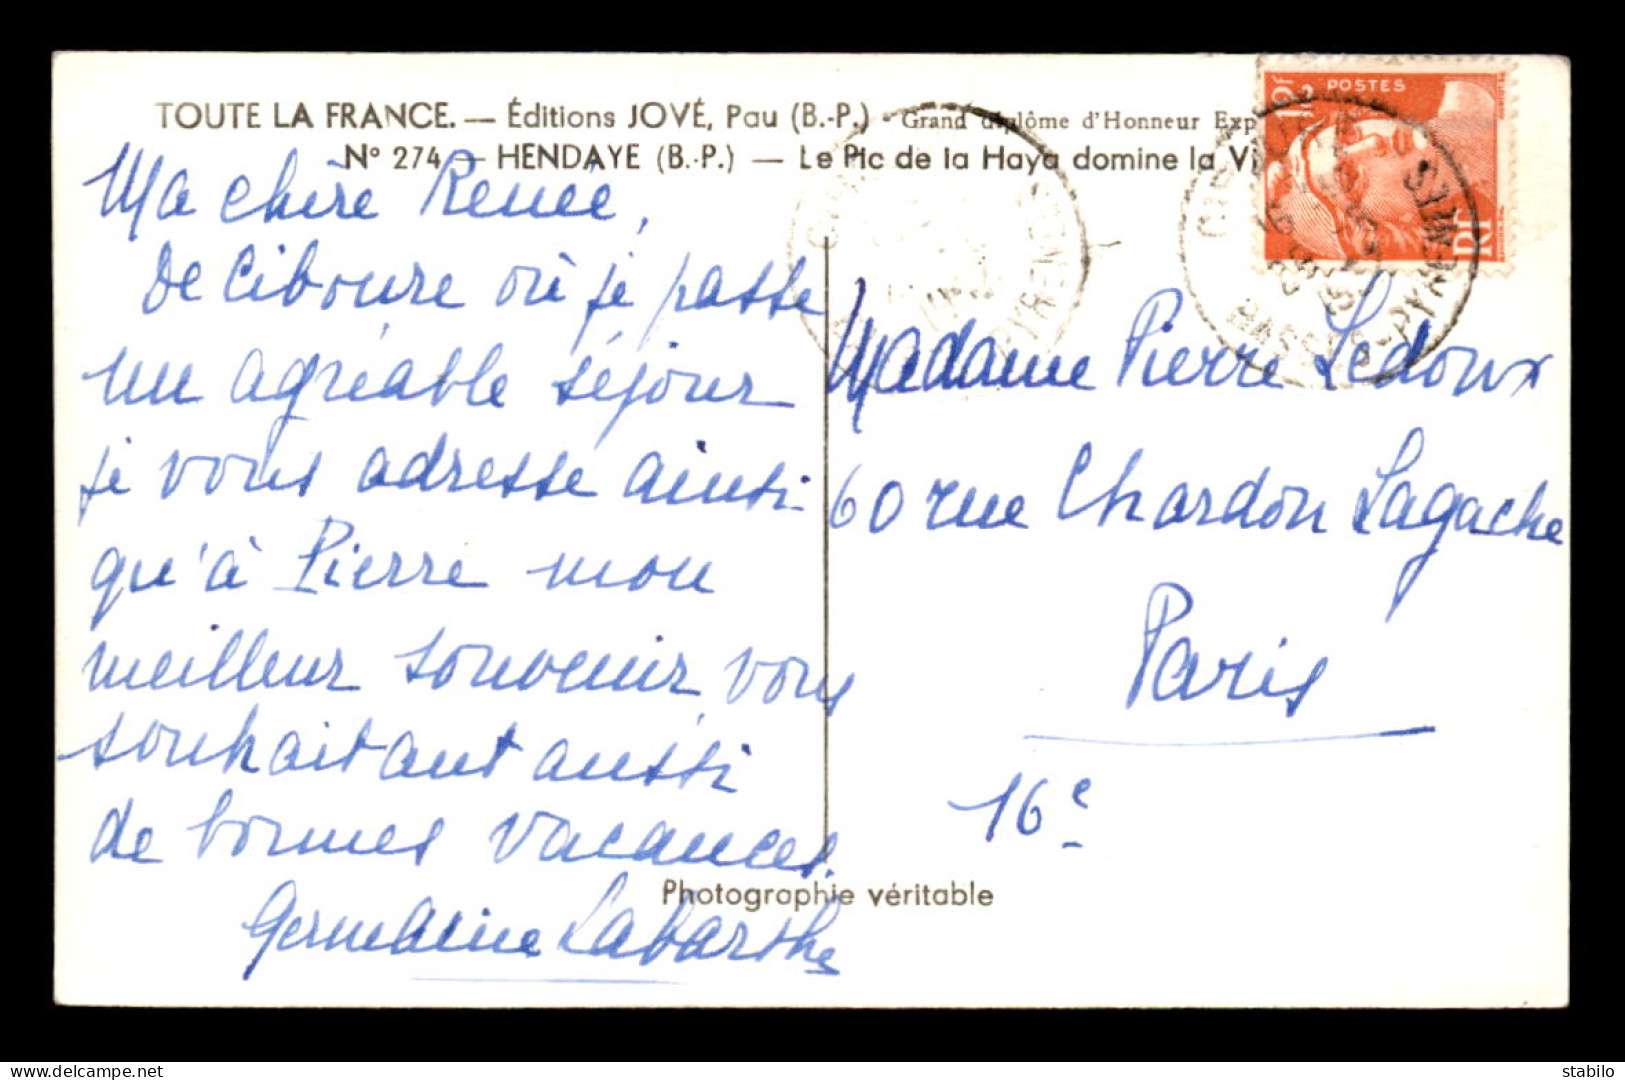 TOUTE LA FRANCE. — Éditions JOVÉ, Pau (B.-P.) - Grand diplôme d'Honneur Exp
N° 274 — HENDAYE (B.-P.) — Le Pic de la Haya domine la Vi
POSTES
RF
BASSES-PYRENEES
PYRENEES
Ma chère Renée,
De Ciboure où je passe
un agréable séjour
je vous adresse ainsi
qu'à Pierre mon
meilleur souvenir, vous
souhaitant aussi
de bonnes vacances.
Germaine Labarthe
Madame Pierre Ledoux
60 rue Chardon Lagache
Paris
16e
Photographie véritable
delcampe.net
stabilo